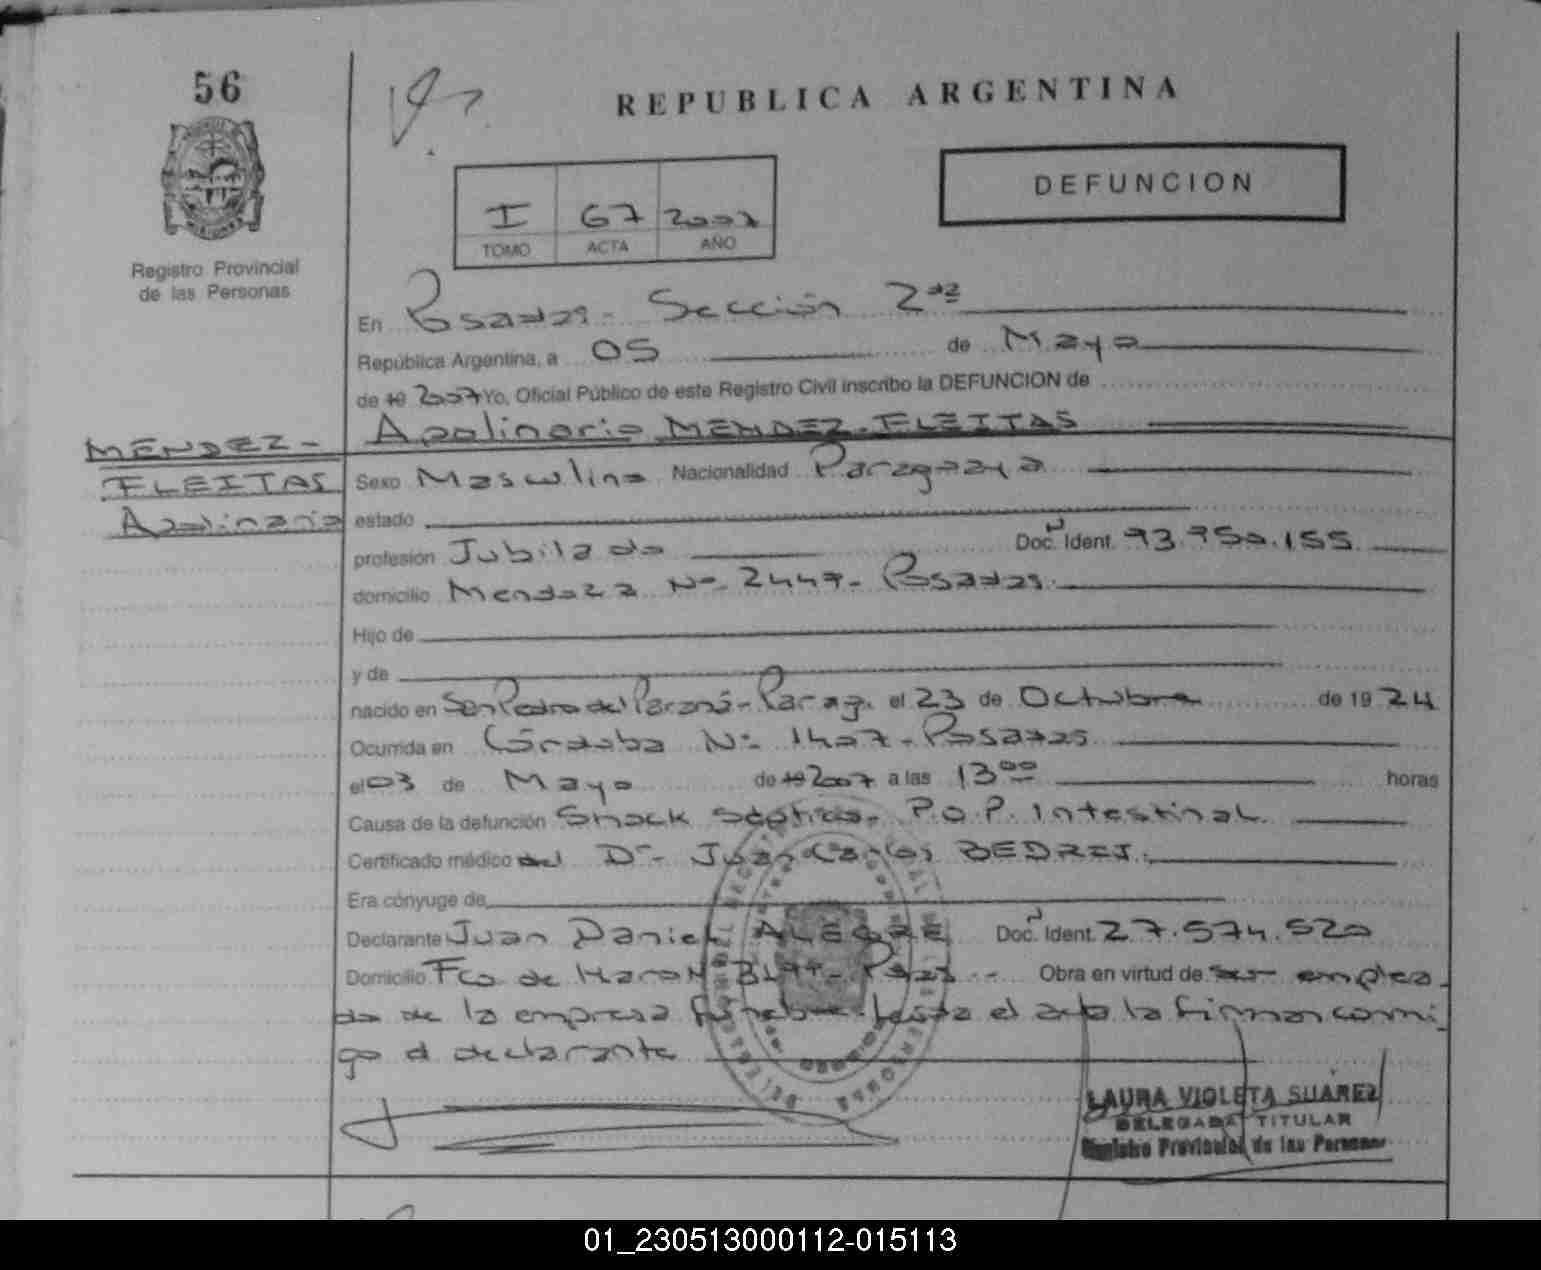 56
REPUBLICA ARGENTINA
DEFUNCION
I 67 2007
TOMO ACTA AÑO
Registro Provincial
de las Personas
En Posadas - Sección 2da
República Argentina, a 05 de Mayo
de 19 2007 Yo, Oficial Público de este Registro Civil inscribo la DEFUNCION de
Apolinario MENDEZ-FLEITAS
MENDEZ-
FLEITAS
Apolinario
Sexo Masculino Nacionalidad Paraguaya
estado
profesión Jubilado Doc. Ident. 93.750.155
domicilio Mendoza Nº 2447- Posadas
Hijo de
y de
nacido en San Pedro del Paraná - Parag. el 23 de Octubre de 1924
Ocurrida en Córdoba Nº 1407 - Posadas
el 03 de Mayo de 19 2007 a las 13 00 horas
Causa de la defunción Shock Séptico - P.O.P. Intestinal
Certificado médico del Dr. Juan Carlos BEDRIJ
Era cónyuge de
Declarante Juan Daniel ALEGRE Doc. Ident. 27.574.520
Domicilio Fco de Haro Nº - Obra en virtud de ser emplea-
do de la empresa fúnebre. el acta la firma conmi-
go el declarante
LAURA VIOLETA SUAREZ
DELEGADA TITULAR
Registro Provincial de las Personas
01_230513000112-015113